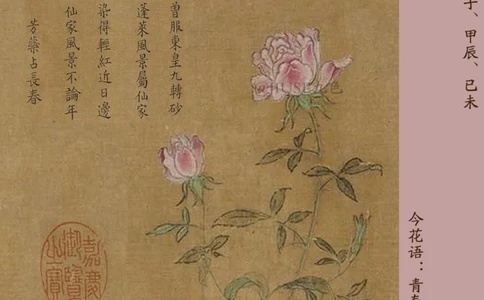 、甲辰、己未
今花语：青春
曾服東皇九轉砂
蓬萊風景屬仙家
染得輕紅近日邊
仙家風景不論年
芳藥占長春
嘉慶
御覽
之寶